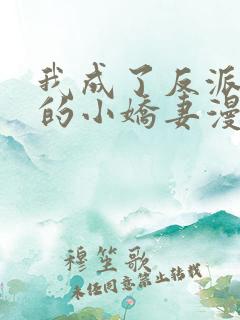 我成了反派
的小娇妻漫
穆笙歌
未经同意禁止转载